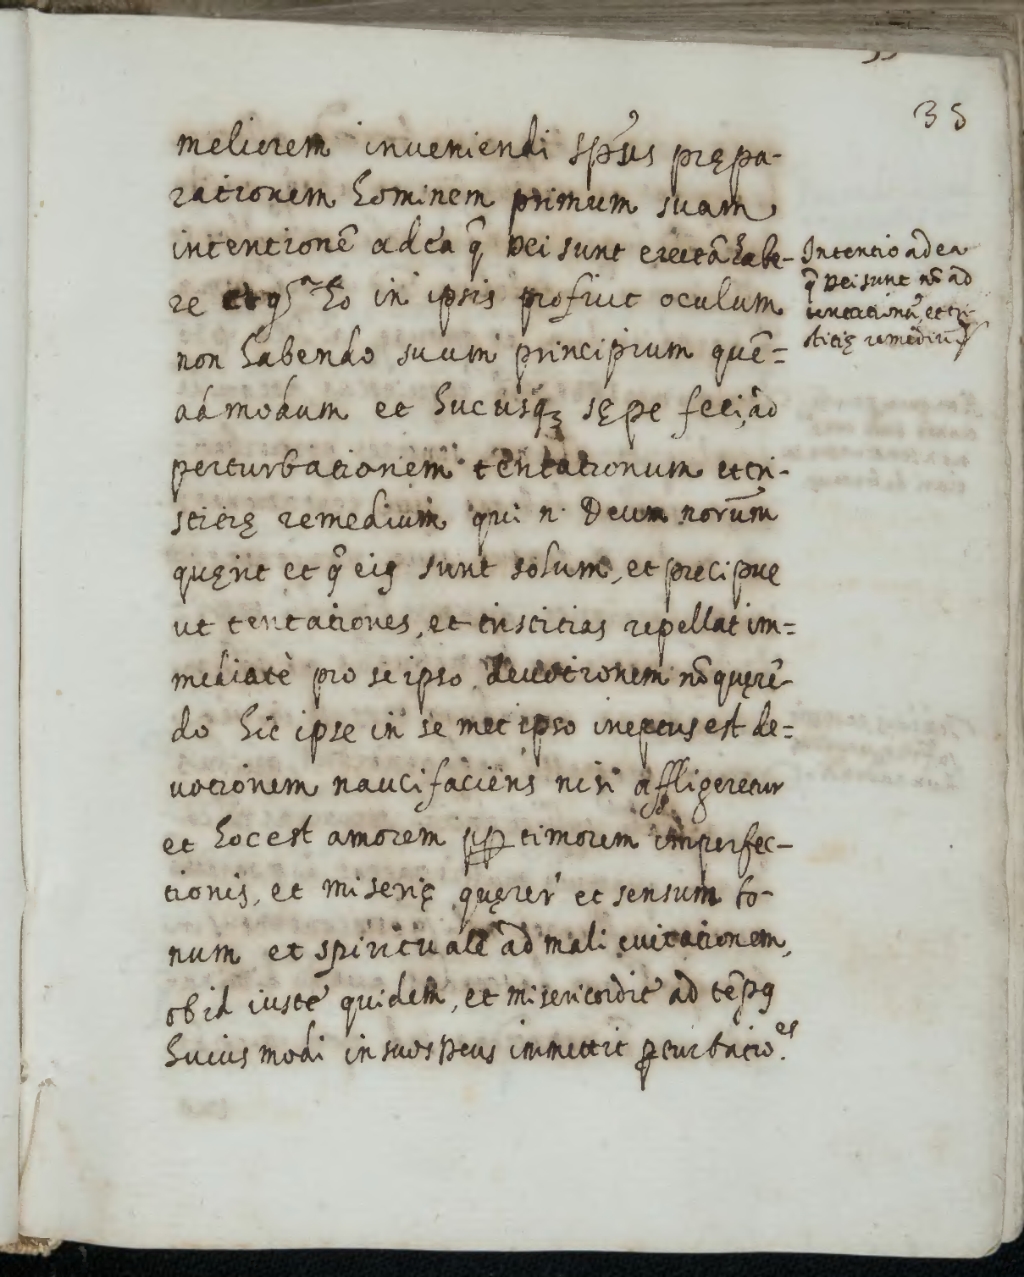 35
meliorem inveniendi sp̃us prępa-
rationem hominem primum suam
intentionē ad ea q̃ Dei sunt erectā habe-
re in ipsis oculum
non habendo suum principium quē=
ad modum et hucusq₃ sępe feci, ad
perturbationem tentationum et tri-
stitię remedium qui n. Deum
et q̃ eiꝯ sunt solum, et precipue
ut tentationes, et tristitias repellat im=
mediatè pro se ipso devotionem nō querē
do hic ipse in se met ipso ineptus est de=
votionem naucifaciens nisi affligeretur
et hoc est amorem timorem imperfec-
tionis, et miserię quęrer et sensum bo-
num et spirituale ad mali evitationem,
ob id iuste quidem, et misericordit̃ ad tēpꝯ
huius modi in suos Deus immittit ꝑturbatio.ᵉˢ
Intentio ad ea
q̃ Dei sunt nō ad
tentationū, et tri-
stitię remediū